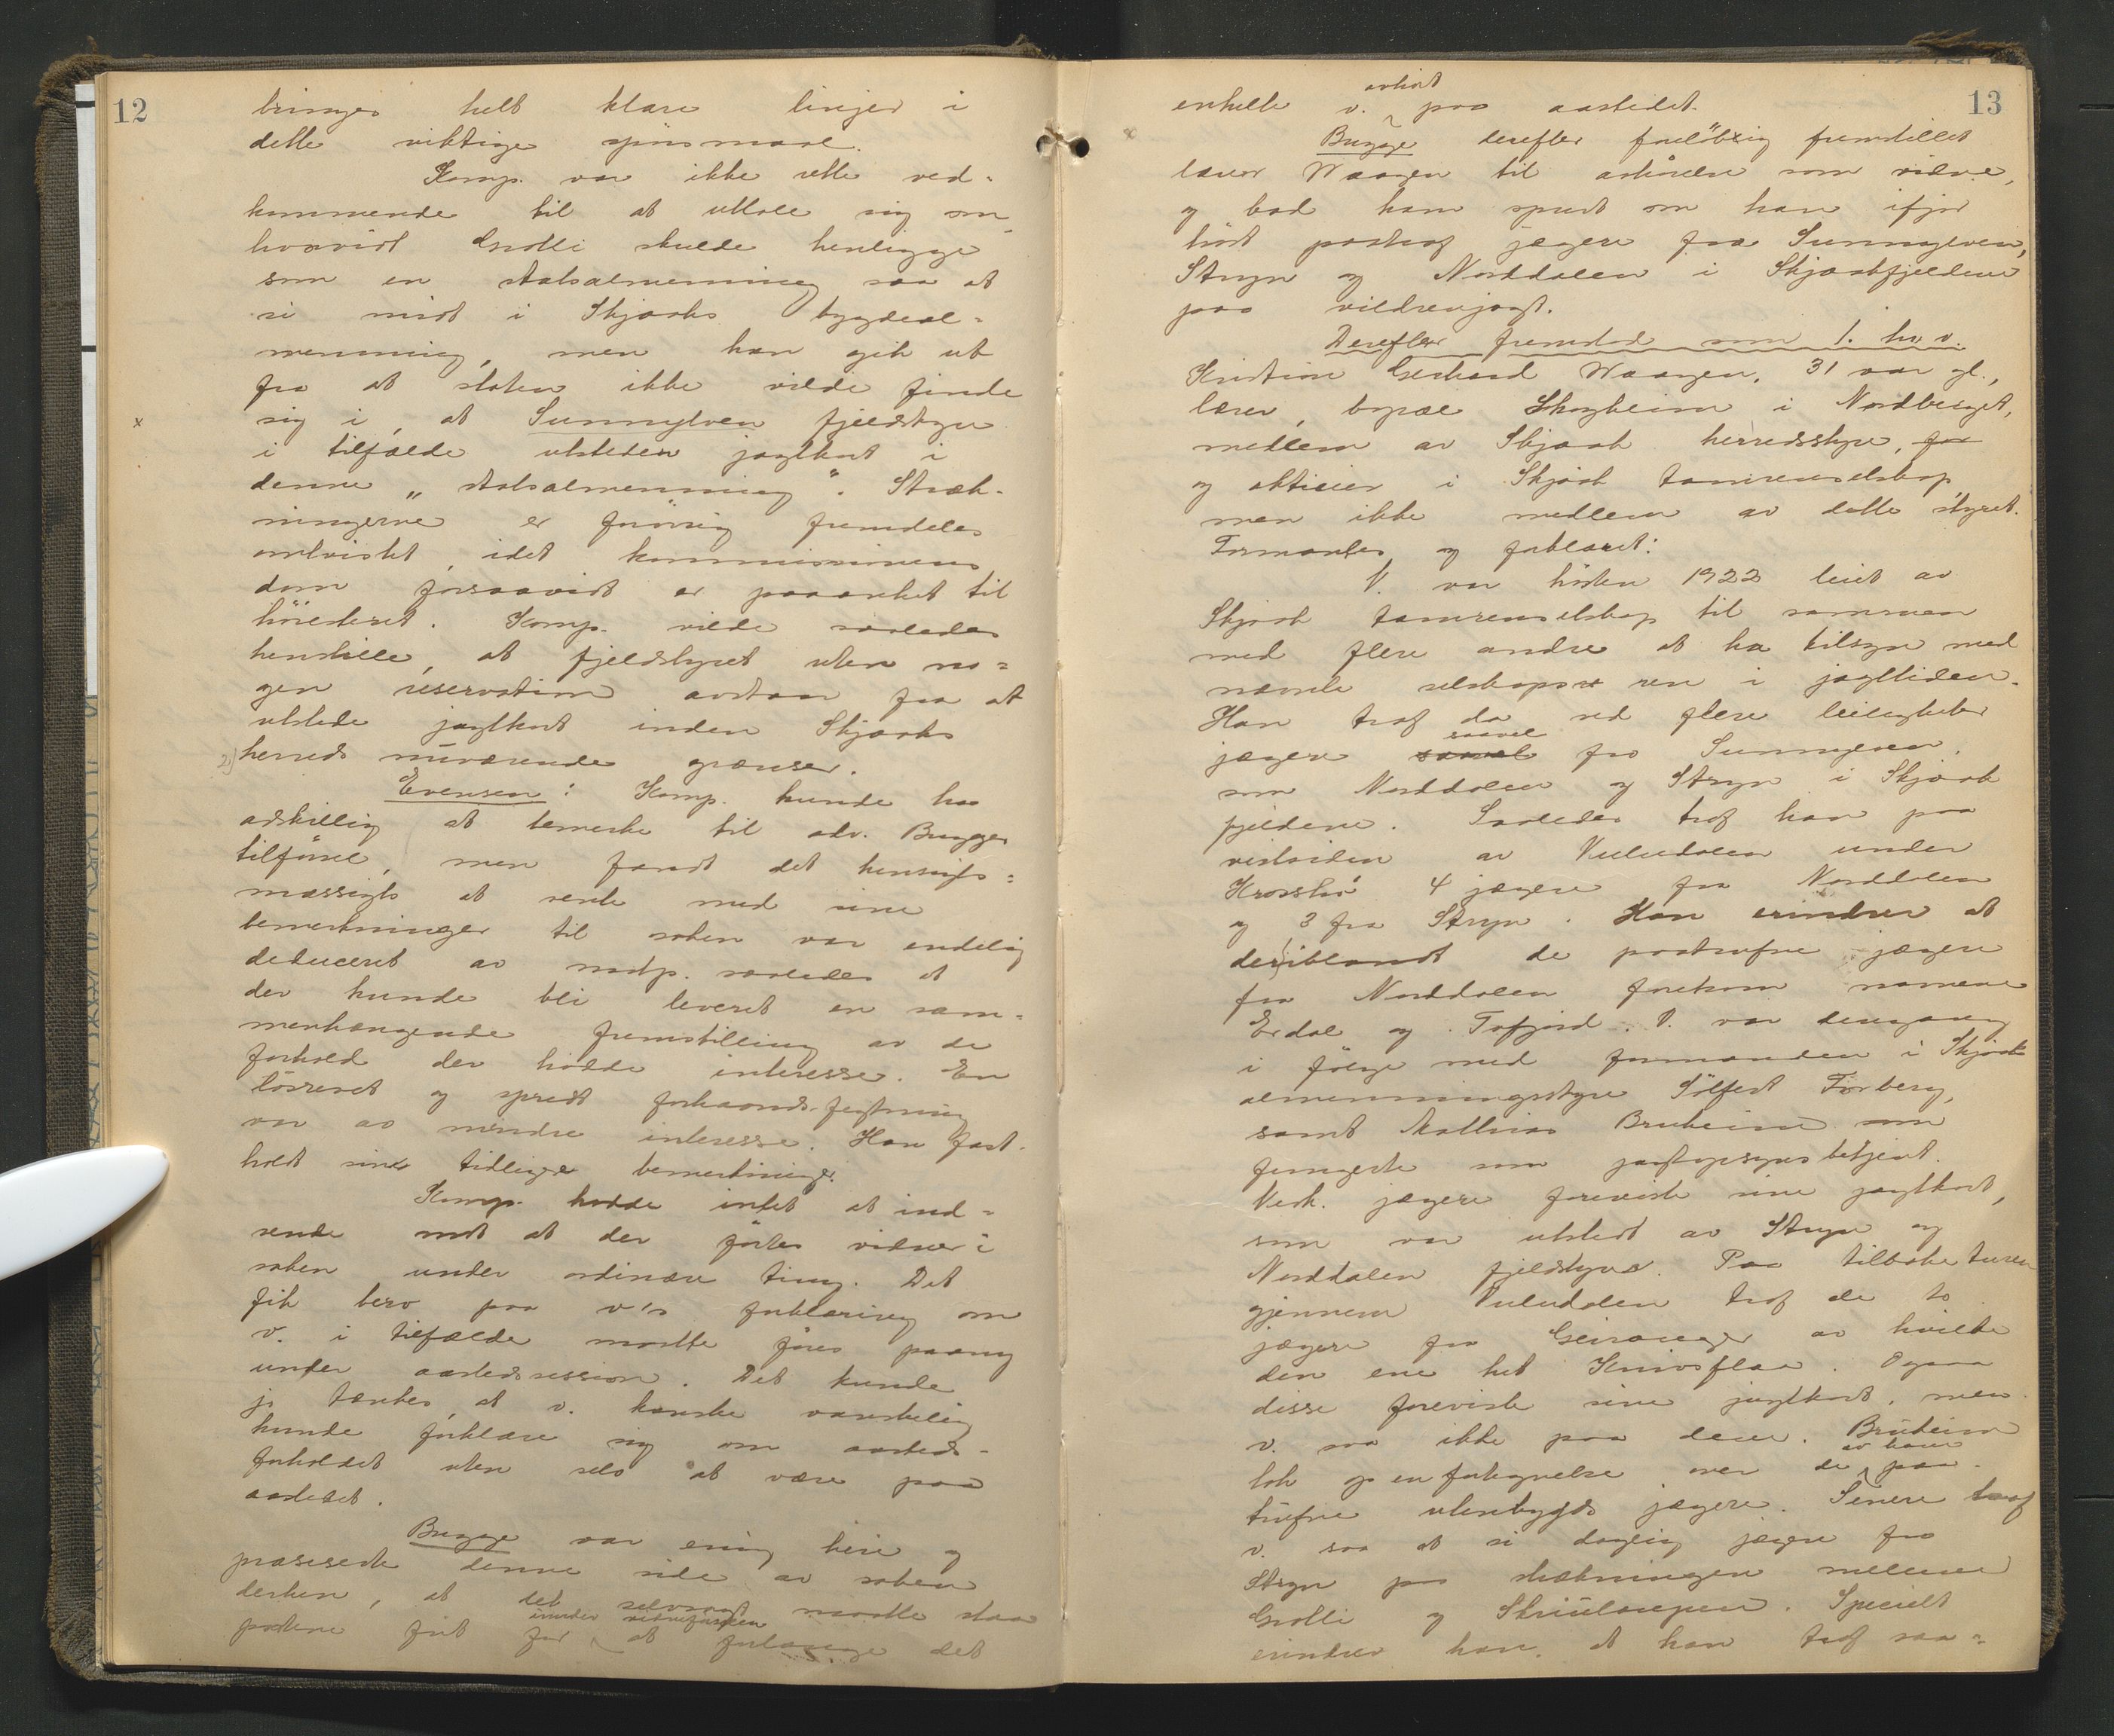 12
bringes helt klare linjer i
dette viktige spörsmaal.
Komp. var ikke rette ved-
kommende til at uttale sig om
hvorvidt Grotli skulde henligge
som en statsalmenning saa at
si midt i Skjaaks bygdeal-
menning, men han gik ut
fra at staten ikke vilde finde
x sig i, at Sunnylven fjeldstyre
i tilfælde utsteder jagtkort i
denne "statsalmenning". Stræk-
ningerne er forövrig fremdeles
omtvistet, idet kommissionens
dom forsaavidt er paaanket til
höiesteret. Komp. vilde saaledes
henstille, at fjeldstyret uten no-
gen reservation avstaar fra at
utstede jagtkort inden Skjaaks
herreds nuværende grænser.
Evensen: Komp. kunde ha
adskillig at bemerke til adv. Bugges
tilförsel, men fandt det hensigts-
mæssigst at vente med sine
bemerkninger til saken var endelig
deduceret av motp. saaledes at
der kunde bli leveret en sam-
menhængende fremstilling av de
forhold der hadde interesse. En
lösrevet og spredt forhaandsfegtning
var av mindre interesse. Han fast-
holdt sine tidligere bemerkninger.
Komp. hadde intet at ind-
vende mot at der förtes vidner i
saken under ordinære ting. Det
fik bero paa v's forklaring om
v. i tilfælde maatte föres paany
under aastedssession. Det kunde
jo tænkes, at v. kanske vanskelig
kunde forklare sig om aasteds-
forholdet uten selv at være paa
aastedet.
Bugge var enig heri og
præsiserte denne side av saken
derhen, at det selvsagt maatte staa
under vidneförselen
partene frit for at forlange det
13
avhört
enkelte v. paa aastedet.
x Bugge derefter foreløbig fremstillet
lærer Waagen til avhörelse som vidne,
og bad ham spurt om han ifjor
höst paatraf jægere fra Sunnylven,
Stryn og Norddalen i Skjaakfjeldene
paa vildrenjagt.
Derefter fremstod som 1. hv.
Kristian Gerhard Waagen, 31 aar gl.,
lærer, bopæl Skogheim i Nordberget,
medlem av Skjaak herredsstyre, for
og aktieier i Skjaak tamrenselskap
men ikke medlem av dette styret.
Formantes og forklaret:
V. var hösten 1922 leiet av
Skjaak tamrenselskap til sammen
med flere andre at ha tilsyn med
nævnte selskaps ren i jagttiden.
Han traf da ved flere leiligheter
saavel
jægere saavel fra Sunnylven,
som Norddalen og Stryn i Skjaak
fjeldene. Saaledes traf han paa
vestsiden av Vuludalen under
Krosshö 4 jægere fra Norddalen
og 3 fra Stryn. Han erindrer at
deriblandt de paatrufne jægere
fra Norddalen forekom navnene
Erdal og Tafjord. V. var dengang
i fölge med formanden i Skjaak
almenningsstyre Sölfest Forberg,
samt Mathias Bruheim som
fungerte som jagtopsynsbetjent.
Vedk. jægere foreviste sine jagtkort,
som var utstedt av Stryn og
Norddalen fjeldstyre. Paa tilbaketuren
gjennem Vuludalen traf de to
jægere fra Geiranger av hvilke
den ene het Knivsflaa. Ogsaa
disse foreviste sine jagtkort, men
v. saa ikke paa dem. Bruheim
av ham
tok op en fortegnelse over de paa-
trufne utenbygds jægere. Senere traf
v. saa at si daglig jægere fra
Stryn paa strækningen mellem
Grotli og Skridulaupen. Specielt
erindrer han, at han traf saa-